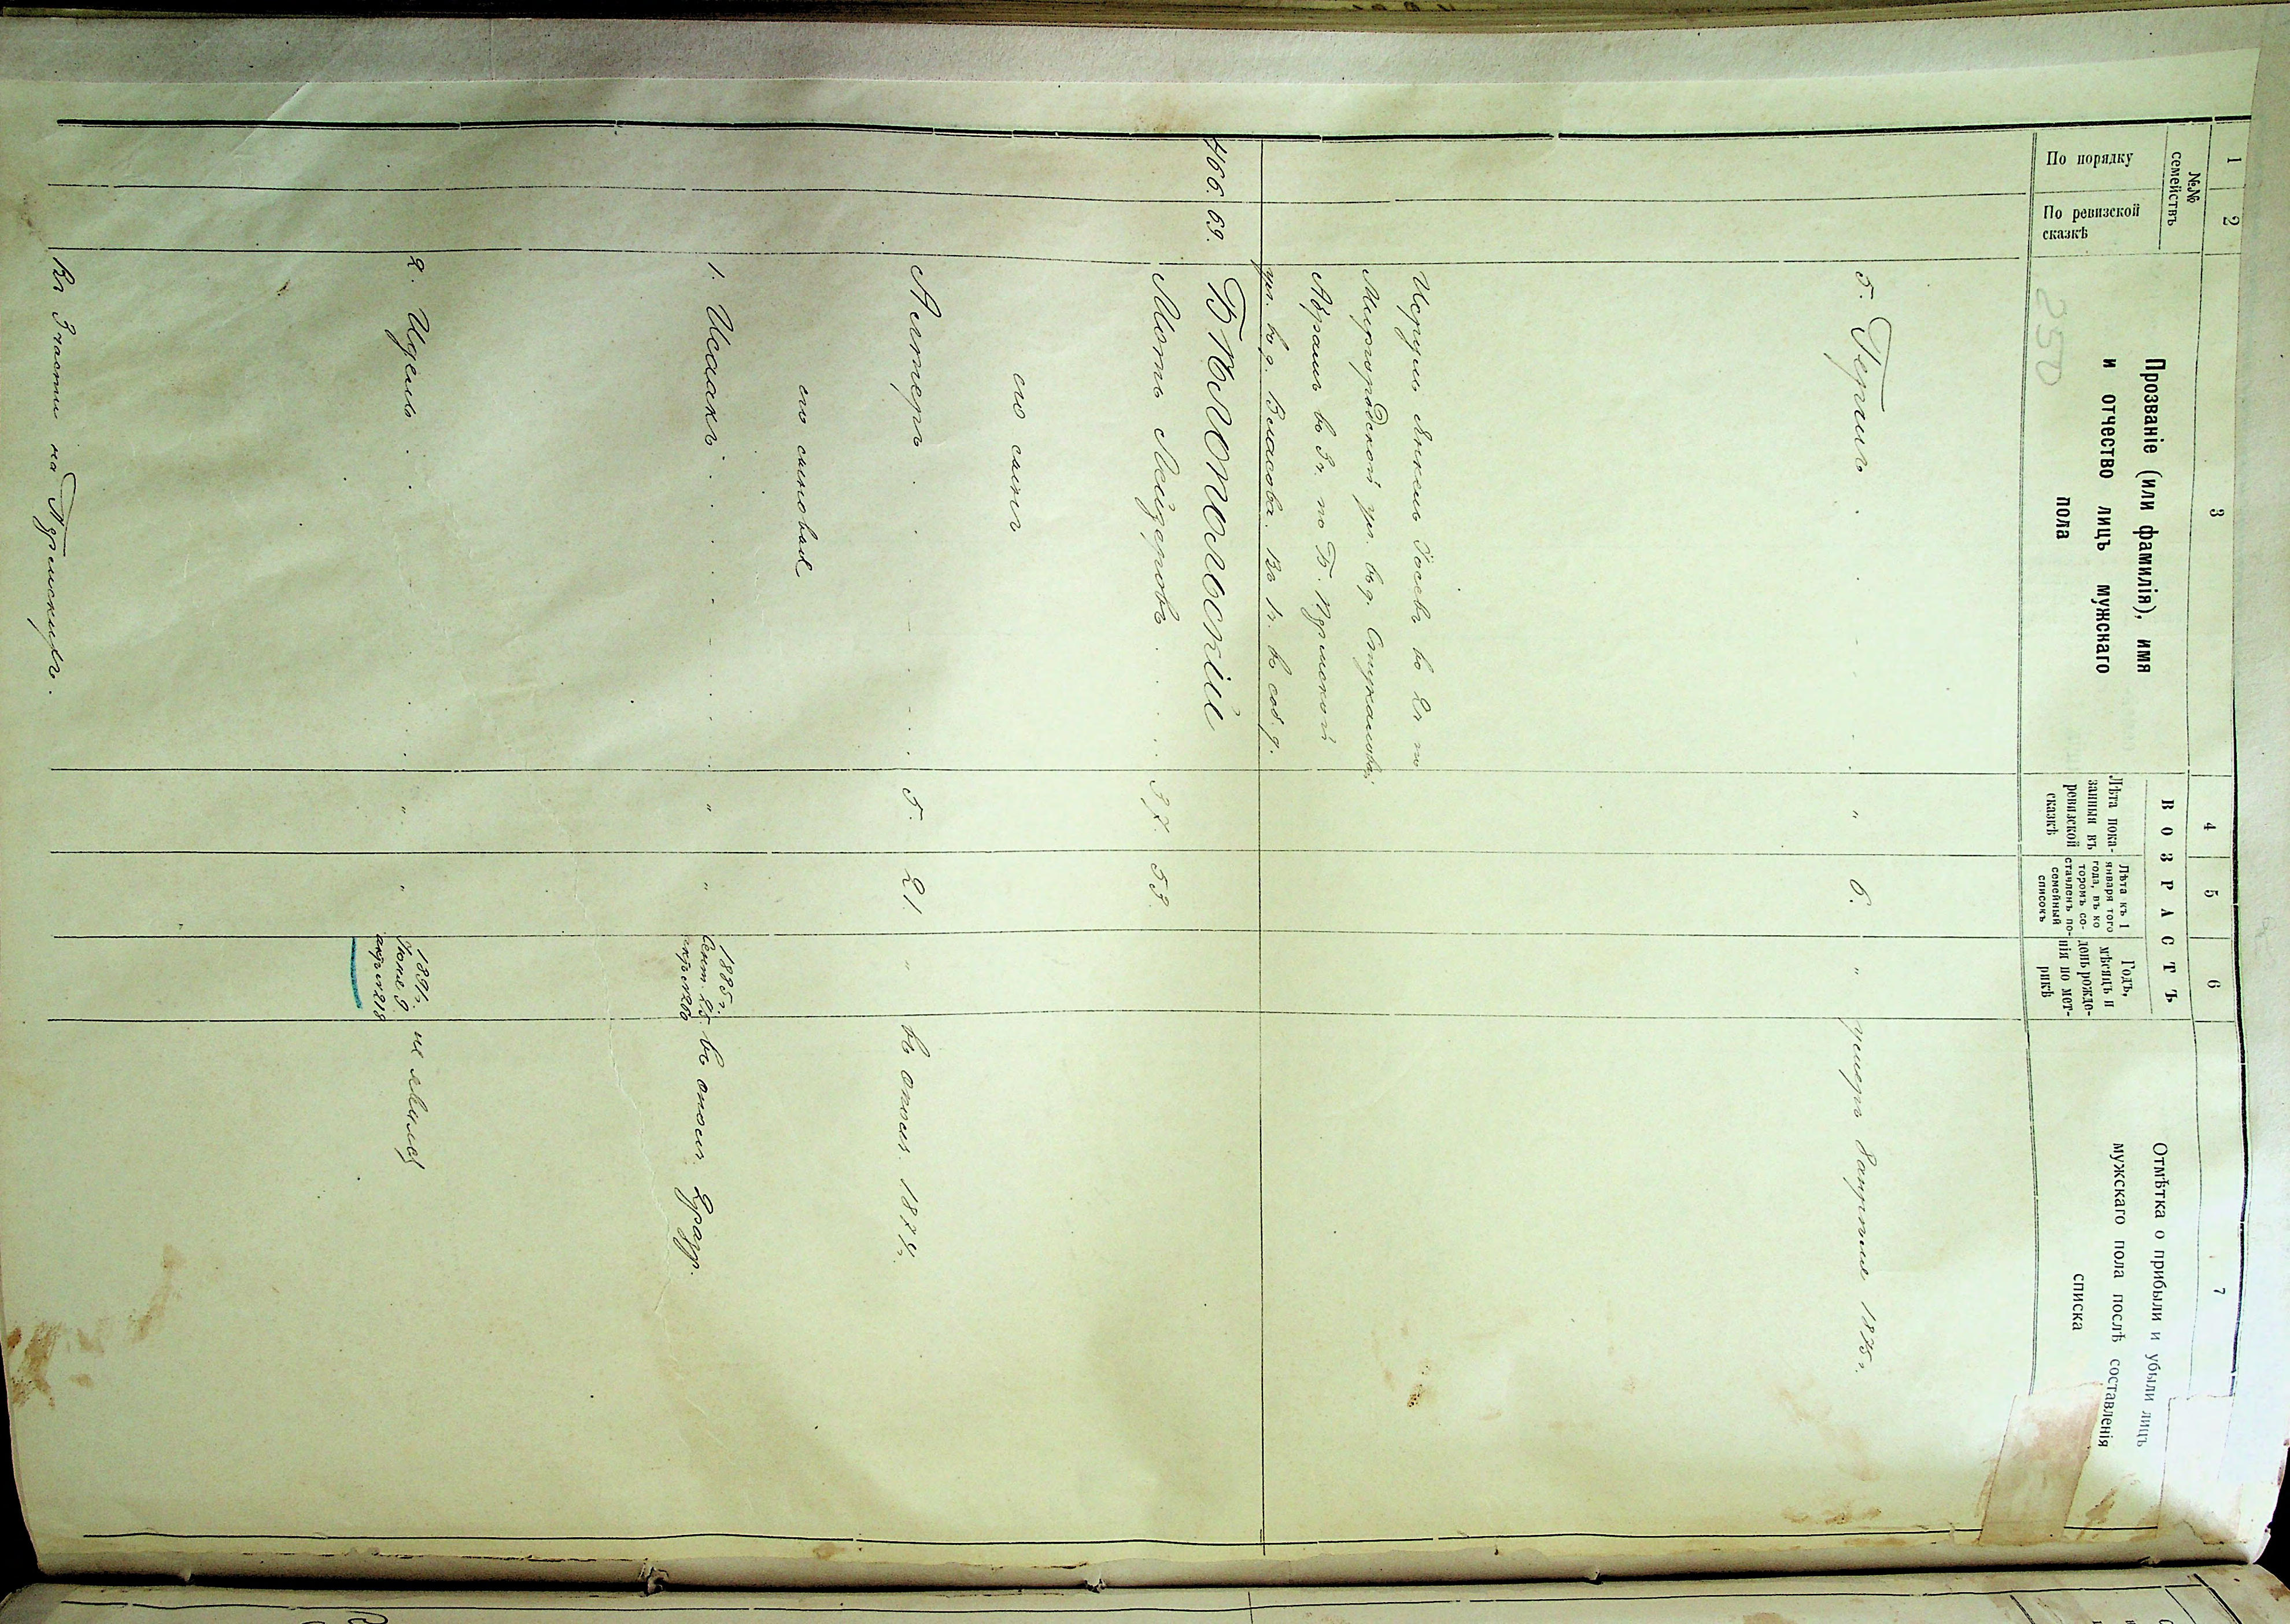 1 2 3 4 5 6 7
№№ семействъ
По порядку
По ревизской сказкѣ
Прозваніе (или фамилія), имя
и отчество лицъ мужскаго
пола
ВОЗРАСТЪ
Лѣта пока-
занныя въ
ревизской
сказкѣ
Лѣта къ 1
января того
года, въ ко
торомъ со-
ставленъ по-
семейный
списокъ
Годъ,
мѣсяцъ и
день рожде-
нія по мет-
рикѣ
Отмѣтка о прибыли и убыли лицъ
мужскаго пола послѣ составленія
списка
250
5. Гершъ . . . " 6. " умеръ 8 апрѣля 1875 г.
Янкель Іосевъ въ 2ч по
Миргородской ул. въ д.
Абрамъ въ 3ч. по Б.
ул. въ д. Власова. въ 1ч. въ соб. д.
466. 69. Бѣлопольскій
Мотъ Лейзеровъ . . . 37. 53.
его сынъ
Алтеръ . . . 5. 21. " въ 1874г.
его сыновья
1. Исаакъ . . . " " 1885г.
Сент. 25 въ 2 разр.
2. Идель . . . " " 1891г.
Іюля 9 не
актъ №218
Въ 3 части на